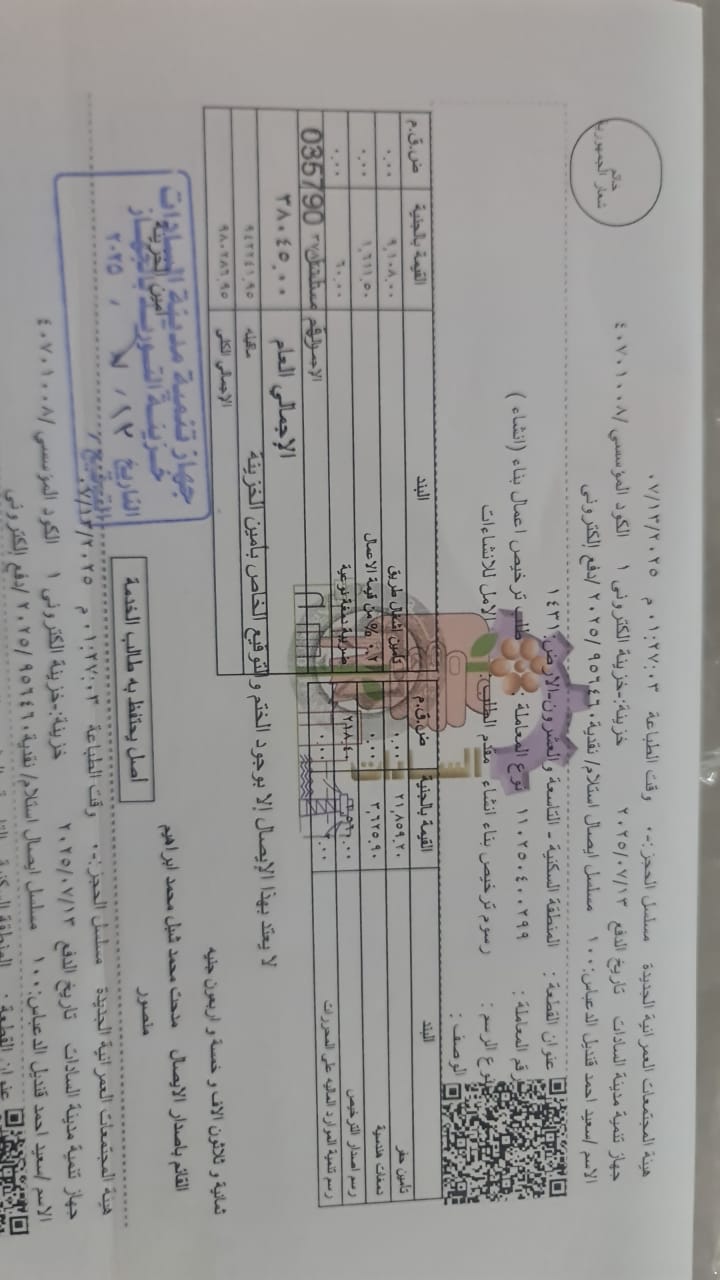 خاتم
شعار الجمهورية
هيئة المجتمعات العمرانية الجديدة مسلسل الحجز:-٠ وقت الطباعة ٠١:٢٧:٠٣ م ٠٧/١٣/٢٠٢٥
جهاز تنمية مدينة السادات تاريخ الدفع ٢٠٢٥/٠٧/١٣ خزينة:-خزينة الكترونى ١ الكود المؤسسى /٤٠٧٠١٠٠٨
الاسم /سعيد احمد قنديل الدعباس: ١٠٠ مسلسل ايصال استلام/ نقدية ٩٥٦٤٦٠ /٢٠٢٥ /دفع إلكترونى
عنوان القطعة : المنطقة السكنية - التاسعة والعشرون-الارض: ١٤٣
رقم المعاملة : ١١٠٢٥٠٤٠٠٢٩٩ نوع المعاملة : طلب ترخيص اعمال بناء (انشاء )
نوع الرسم : رسوم ترخيص بناء انشاء مقدم الطلب: الامل للانشاءات
الوصف :
البند القيمة بالجنية ض.ق.م البند القيمة بالجنية ض.ق.م
تامين حفر ٢١,٨٥٩.٢٠ ٠.٠٠ تامين اشغال طريق ٩,١٠٨.٠٠ ٠.٠٠
دمغات هندسية ٣,٦٢٥.٩٠ ٠.٠٠ ٠.٢% من قيمة الاعمال ١,٦١١.٥٠ ٠.٠٠
رسم اصدار الترخيص ضريبة دمغة نوعية ٦٠.٠٠ ٠.٠٠
رسم تنمية الموارد المالية على المحررات
رقم مسلسل 035790
الإجمالي العام ٣٨٠٤٥.٠٠
ماقبله ٩٤٢٢٤١.٩٥
الاجمالي الكلى ٩٨٠٢٨٦.٩٥
لا يعتد بهذا الإيصال إلا بوجود الختم والتوقيع الخاص بأمين الخزينة
ثمانية و ثلاثون الاف و خمسة و اربعون جنيه
القائم باصدار الايصال مدحت محمد نبيل محمد ابراهيم
منصور
أمين الخزينة
أصل يحتفظ به طالب الخدمة
جهاز تنمية مدينة السادات
التاريخ ١٣ / ٧ / ٢٠٢٥
التوقيع /
هيئة المجتمعات العمرانية الجديدة مسلسل الحجز:-٠ وقت الطباعة ٠١:٢٧:٠٣ م ٠٧/١٣/٢٠٢٥
جهاز تنمية مدينة السادات تاريخ الدفع ٢٠٢٥/٠٧/١٣ خزينة:-خزينة الكترونى ١ الكود المؤسسى /٤٠٧٠١٠٠٨
الاسم /سعيد احمد قنديل الدعباس: ١٠٠ مسلسل ايصال استلام/ نقدية ٩٥٦٤٦٠ /٢٠٢٥ /دفع إلكترونى
عنوان القطعة : المنطقة السكنية